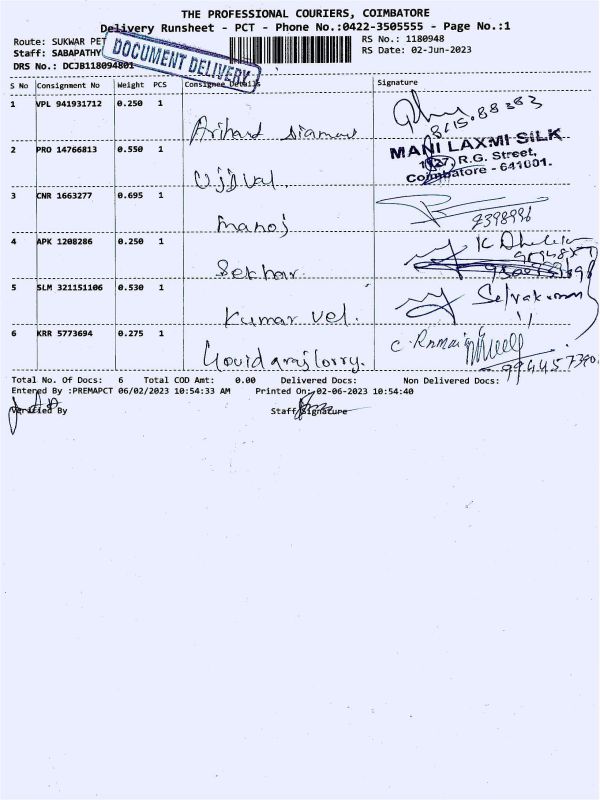 THE PROFESSIONAL COURIERS, COIMBATORE
Delivery Runsheet - PCT - Phone No.:0422-3505555 - Page No.:1
Route: SUKWAR PET
RS No.: 1180948
Staff: SABAPATHY
RS Date: 02-Jun-2023
DRS No.: DCJB118094801
DOCUMENT DELIVERY
S No Consignment No Weight PCS Consignee Details Signature
1 VPL 941931712 0.250 1 Arihard
MANI LAXMI SILK
R.G. Street,
Coimbatore - 641001.
2 PRO 14766813 0.550 1 Ujjval.
3 CNR 1663277 0.695 1 manoj
4 APK 1208286 0.250 1 Sekhar K
5 SLM 321151106 0.530 1 Kumar vel. Selvakumar
6 KRR 5773694 0.275 1
Total No. Of Docs: 6 Total COD Amt: 0.00 Delivered Docs: Non Delivered Docs:
Entered By :PREMAPCT 06/02/2023 10:54:33 AM Printed On: 02-06-2023 10:54:40
Verified By Staff Signature